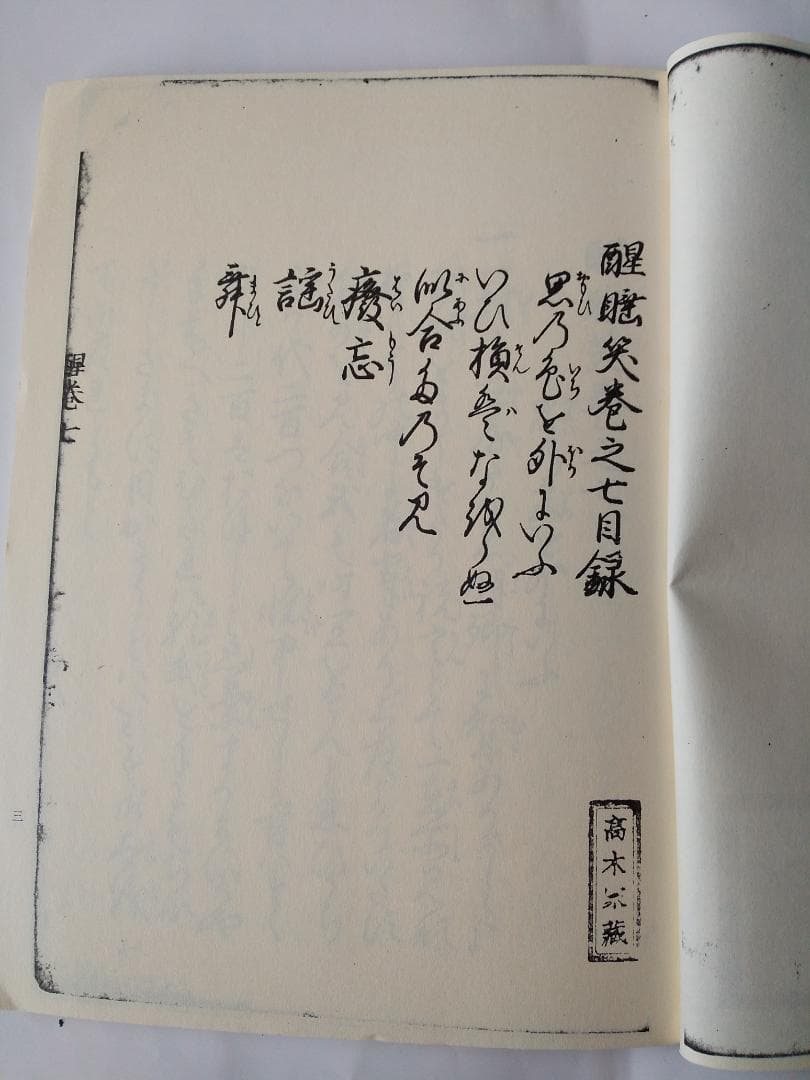 醒睡笑巻之七目録
思の色を外にいふ
いひ損ハなをらぬ
似合たのそみ
癈忘
謡
舞
醒巻七
三
高木家藏